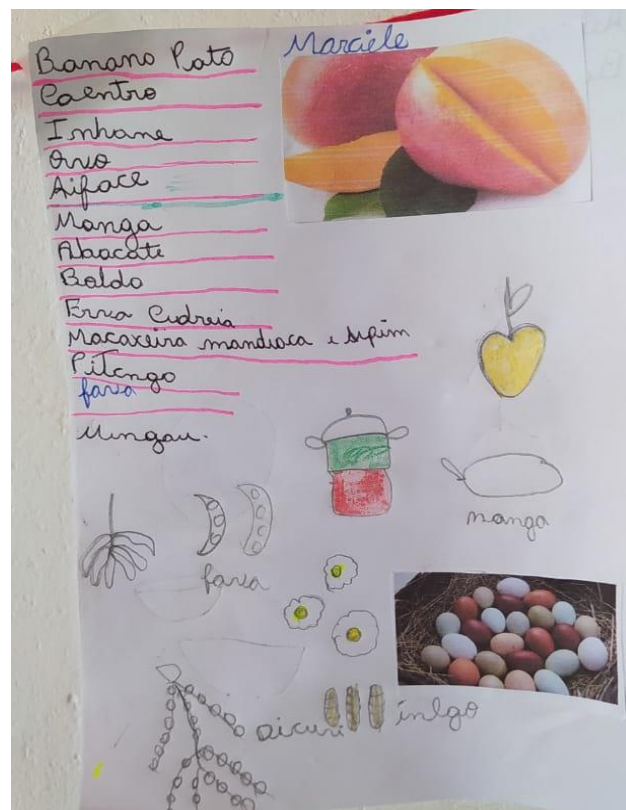 Marciele
Banano Pato
Caentro
Inhane
Ovo
Aiface
Manga
Abacate
Boldo
Erva Cidreia
Macaxeira mandioca e Aipim
Pitengo
fava
Mingau.
manga
fava
aicuri
inlgo